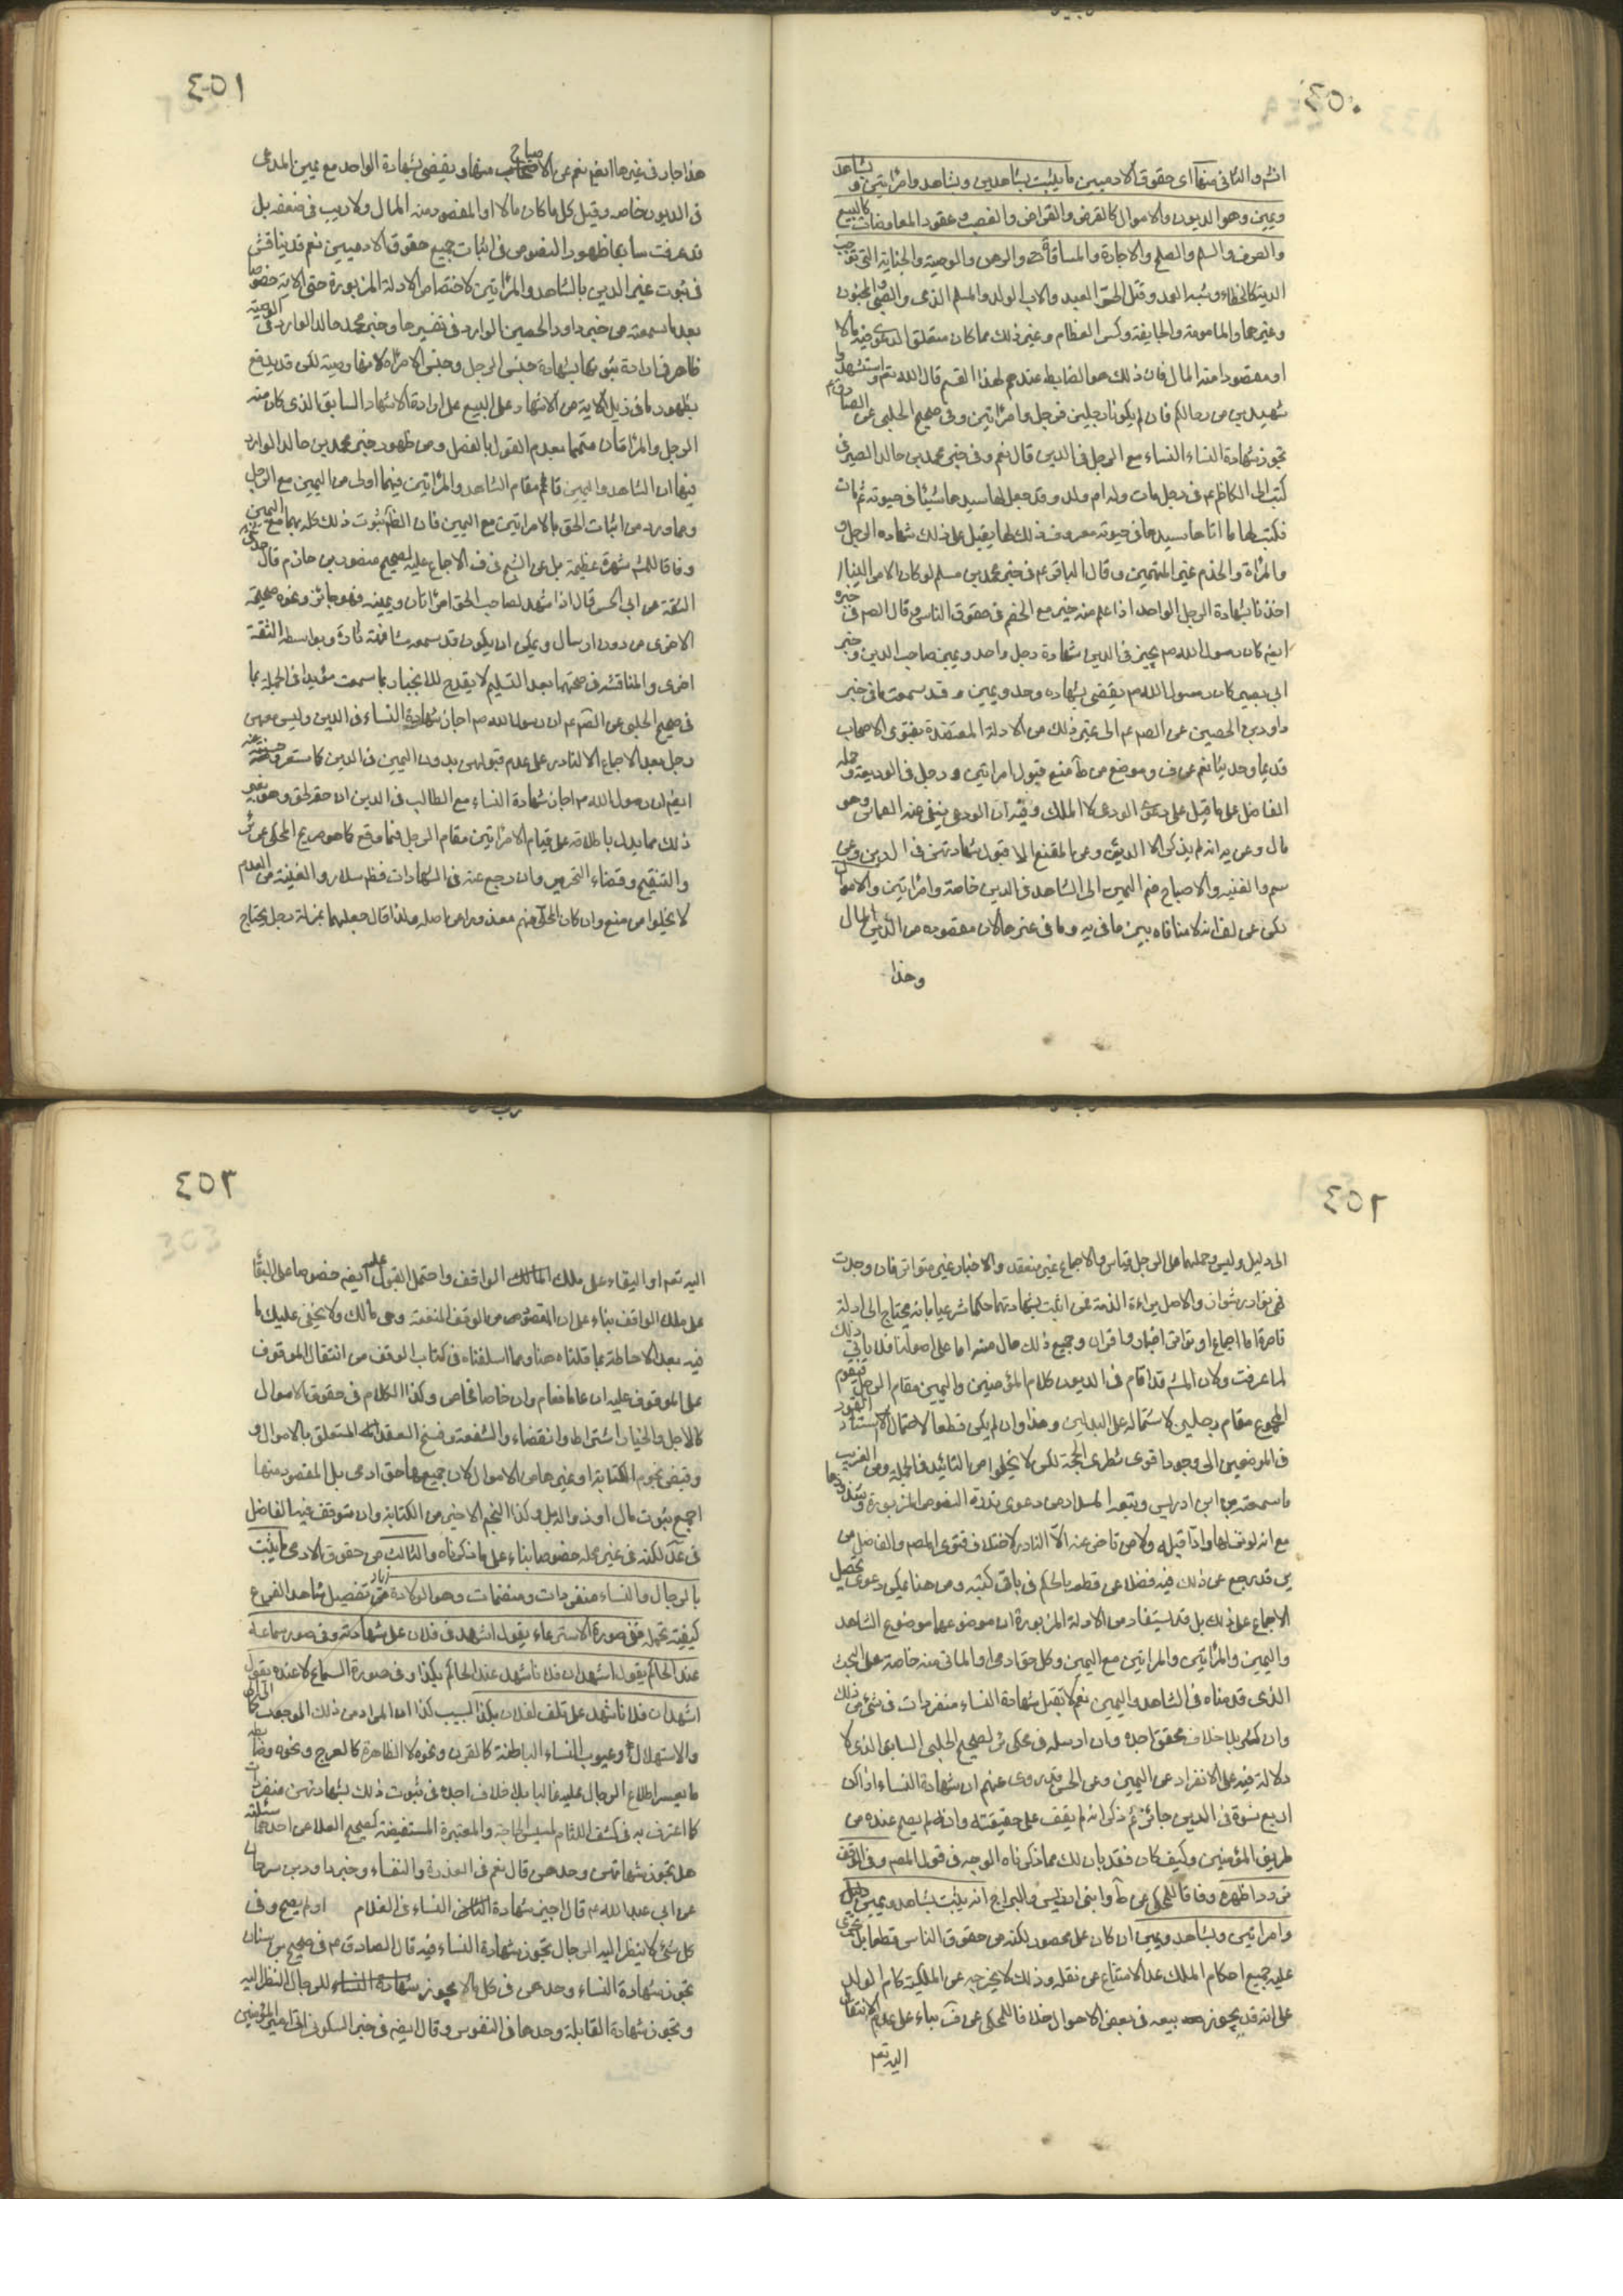 ٤٥٠
انتهى والثانى منهما اى حقوق الادميين ما يثبت بشاهدين وبشاهد وامراتين وبشاهد
ويمين وهو الديون والاموال كالقرض والقراض والغصب وعقود المعاوضات كالبيع
والصرف والسلم والصلح والاجارة والمساقاة والرهن والوصية والجناية التى توجب
الدية كالخطاء وشبه العمد وقتل الحر العبد والاب الولد والمسلم الذمى والصبى والمجنون
وغيرهما والمامومة والجايفة وكسر العظام وغير ذلك مما كان متعلق الدعوى فيه مالا
او مقصودا منه المال فان ذلك هو الضابط عندهم لهذا القسم قال الله تعم واستشهدوا
شهيدين من رجالكم فان لم يكونا رجلين فرجل وامراتين وفى صحيح الحلبى عن الصادق ع
تجوز شهادة النساء مع الرجل فى الدين قال نعم وفى خبر محمد بن خالد الصيرفى
كتب الى الكاظم ع فى رجل مات وله ام ولد وقد جعل لها سيدها شيئا فى حيوته ثم مات
فكتب لها ما اتاها سيدها فى حيوته معروف ذلك لها يقبل على ذلك شهادة الرجل و
والمراة والخدم غير المتهمين وقال الباقر ع فى خبر محمد بن مسلم لو كان الامر الينا
اخذنا بشهادة الرجل الواحد اذا علم منه خير مع الخصم فى حقوق الناس وقال الصم فى خبره
ايضم كان رسول الله ص يجيز فى الدين شهادة رجل واحد ويمين صاحب الدين وخبر
ابى بصير كان رسول الله ص يقضى بشهادة واحد ويمين وقد سمعت ما فى خبر
داود بن الحصين عن الصم ع الى غير ذلك من الادلة المعتضدة بفتوى الاصحاب
قديما وحديثا نعم عن ف وموضع من ط منع قبول امراتين ورجل فى الوديعة وحمله
الفاضل على ما قيل على دعوى الودعى لا الملك وفيه ان الودعى ينفى عنه الضمان وهو
مال وعن يه انه لم يذكر الا الديون وعن المقنع الا قبول شهادتهن فى الدين وعن
سم والغنيه والاصباح ضم اليمين الى الشاهد فى الدين خاصة وامراتين والاموال
لكن عن لف انه لا منافاه بين ما فى يه وما فى غيرها لان مقصوده من الدين المال
وهذا
٤٥١
هذا جار فى غيرها ايضم نعم عن الاصباح منها ويقضى بشهادة الواحد مع يمين المدعى
فى الديون خاصه وقيل كل ما كان مالا او المقصود منه المال ولا ريب فى ضعفه بل
قد عرفت سابقا ظهور النصوص فى اثبات جميع حقوق الادميين نعم قد يناقش
فى ثبوت غير الدين بالشاهد والمراتين لاختصاص الادلة المزبورة حتى الاية خصوصا
بعد ما سمعته من خبر داود الحصين الوارد فى تفسيرها وخبر محمد خالد الوارد فى الوصية
ظاهر فى ارادة ثبوتها بشهادة جنس الرجل وجنس الامراة لانها وصية لكن قد يدفع
بظهور ما فى ذيل الاية من الاشهاد على البيع على ارادة الاشهاد السابق الذى كان منه
الرجل والمراتان متمما بعدم القول بالفصل ومن ظهور خبر محمد بن خالد الوارد
فيها ان الشاهد واليمين قائم مقام الشاهد والمراتين فيهما اولى من اليمين مع الرجل
ومما ورد من اثبات الحق بالامراتين مع اليمين فان الظاهر ثبوت ذلك كله بهما مع اليمين
وفاقا للمشهور شهرة عظيمة بل عن الشيخ فى ف الاجماع عليه لصحيح منصور بن حازم قال حدثنى
الثقة عن ابى الحسن قال اذا شهد لصاحب الحق امراتان ويمينه فهو جائز ونحوه صحيحه
الاخرى من دون ارسال ويمكن ان يكون قد سمعه مشافهة تارة وبواسطه الثقة
اخرى والمناقشه فى صحتهما بعد التسليم لا يقدح للانجبار بما سمعت مؤيدا فى الجملة بما
فى صحيح الحلبى عن الصم ع ان رسول الله ص اجاز شهادة النساء فى الدين وليس معهن
رجل بعد الاجماع الا النادر على عدم قبولهن بدون اليمين فى الدين كما ستعرف
ايضم ان رسول الله ص اجاز شهادة النساء مع الطالب فى الدين ان حقه لحق وهو
ذلك مما يدل باطلاقه على قيام الامراتين مقام الرجل فما وقع كما هو صريح المحكى عن ئر
والتنقيح وقضاء التحرير وان رجع عنه فى الشهادات فظم سلار والغنية من العدم
لا يخلوا من منع وان كان الحلى منهم معذورا من اصله ولذا قال جعلهما بمنزلة رجل يحتاج
٤٥٢
الى دليل وليس وحملهما على الرجل قياس والاجماع غير منعقد والاخبار غير متواتر فان وجدت
فهى نوادر شواذ والاصل براءة الذمة فمن اثبت بشهادتهما حكما شرعيا بانه يحتاج الى ادلة
قاهرة اما اجماع او تواتر اخبار او قران وجميع ذلك خال منه اما على اصولنا فلا ياتى ذلك
لما عرفت ولان المشم قد اقام فى الديون كلام المؤمنين واليمين مقام الرجل فيقوم
المجموع مقام رجلين لاشتماله على البدلين وهذا وان لم يكن قطعا لاحتمال الاستناد
فى الموضعين الى وجود اقوى شطرى الحجة لكن لا يخلوا من التائيد فى الجملة ومن الغريب
ما سمعته من ابن ادريس وتبعه المسلاد من دعوى ندرة النصوص المزبورة وشذوذها
مع انه لو نفى لها رادا قبله ولا من تاخر عنه الا النادر لاختلاف فتوى المصم والفاضل من
بن قد يرجع عن ذلك فيه فضلا عن قطعه بالحكم فى باقى كتبه ومن هنا يمكن دعوى تحصيل
الاجماع على ذلك بل قد يستفاد من الادلة المزبورة ان موضوعهما موضوع الشاهد
واليمين والمراتين والمراتين مع اليمين وكل حق ادمى او المالى منه خاصة على البحث
الذى قدمناه فى الشاهد واليمين نعم لا تقبل شهادة النساء منفردات فى شىء من ذلك
وان كثرن بلا خلاف محقق اجده وان ارسله فى محكى ئر لصحيح الحلبى السابق الذى لا
دلالة فيه على الانفراد عن اليمين وعن الحسن وقد روى عنهم ان شهادة النساء اذا كن
اربع نسوة فى الدين جائز ثم ذكر انه لم يقف على حقيقته وانه لم يصح عنده من
طريق المؤمنين وكيف كان فقد بان لك مما ذكرناه الوجه فى قول المصم وفى الوقف
تردد اظهره وفاقا للمحكى عن ط وابنى ادريس والبراج انه يثبت بشاهد ويمين
وامراتين وبشاهد ويمين ان كان على محصور لكنه من حقوق الناس قطعا بل
عليه جميع احكام الملك عدا الامتناع من نقله وذلك لا يخرجه عن الملكية كام الولد
على انه قد يجوز بيعه فى بعض الاحوال خلافا للمحكى عن ف بناء على عدم الانتقال
اليه تعم
٤٥٣
اليه تعم او البقاء على ملك المالك الواقف واحتمل القبول عليه ايضم خصوصا على البقا
على ملك الواقف بناء على ان المقصود من الوقف المنفعة وهى مالك ولا يخفى عليك ما
فيه بعد الاحاطة بما قلناه هنا وبما اسلفناه فى كتاب الوقف من انتقال الموقوف
على الموقوف عليه ان عاما فعام وان خاصا فخاص وكذا الكلام فى حقوق الاموال
كالاجل والخيار اشتراطا وانقضاء والشفعة وفسخ العقد المتعلق بالاموال و
وقبض نجوم الكتابة او غيرها من الاموال لان جميعها حق ادمى بل المقصود منها
اجمع ثبوت مال او زواله بل وكذا النجم الاخير من الكتابة وان توقف فيه الفاضل
فى عد لكنه فى غير محله خصوصا بناء على ما ذكرناه والثالث من حقوق الادمى ما يثبت
بالرجال والنساء منفردات ومنضمات وهو الولادة تفصيل شاهد الفرع
كيفية تحمله ففى صورة الاسترعاء يقول اشهد فى فلان على شهادته وفى صور سماعه
عند الحاكم يقول اشهد ان فلانا شهد عند الحاكم بكذا وفى صورة السماع لا عنده يقول
اشهد ان فلانا شهد على فلان لفلان بكذا لسبب كذا
والاستهلال وعيوب النساء الباطنة كالقرن ونحوه لا الظاهرة كالعرج ونحوه
ما يعسر اطلاع الرجال عليه غالبا بلا خلاف اجده فى ثبوت ذلك بشهادتهن منفردات
كما اعترف به فى كشف اللثام لمسيس الحاجة والمعتبرة المستفيضة كصحيح العلا عن احدهما
هل تجوز شهادتهن وحدهن قال نعم فى العذرة والنفساء وخبر داود بن سرحان
عن ابى عبد الله ع قال اجيز شهادة النساء فى الغلام او لم يصح وفى
كل شئ لا ينظر اليه الرجال تجوز شهادة النساء فيه قال الصادق ع فى صحيح بن سنان
تجوز شهادة النساء وحدهن فى كل ما لا يجوز للرجال النظر اليه
وتجوز شهادة القابلة وحدها فى النفوس وقال ايضم فى خبر السكونى اتى امير المؤمنين